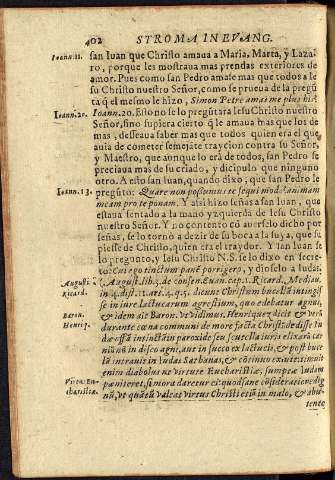 402 STROMA IN EVANG.
Ioann. 11. san Iuan que Christo amaua a Maria, Marta, y Laza-
ro, porque les mostraua mas prendas exteriores de
amor. Pues como san Pedro amase mas que todos a Ie
su Christo nuestro Señor, como se prueua de la pregũ
ta q̃ el mesmo le hizo, Simon Petre amas me plus his?
Ioann. 20. Ioann. 20. Esto no le pregũtara Iesu Christo nuestro
Señor, sino supiera cierto q̃ le amaua mas que los de
mas, desseaua saber mas que todos quien era el que
auia de cometer semejãte trayciõn contra su Señor,
y Maestro, que aunque lo erã de todos, san Pedro se
preciaua mas de su criado, y dicipulo que ninguno
otro. A esto san Iuan, quando dixo, que san Pedro le
Ioann. 13. pregũto: Quare non possumus te sequi modò animam
meam pro te ponam. Y assi hizo señas a san Iuan, que
estaua sentado a la mano yzquierda de Iesu Christo
nuestro Señor. Y no contento cõ auerselo dicho por
señas, se lo tornò a dezir de su boca a la suya, que su
piesse de Christo, quien era el traydor. Y san Iuan se
lo pregunto, y Iesu Christo N.S. se lo dixo en secre-
to: Cui ego tinctum panẽ porrigero, y dioselo a Iudas.
August. lib. 3. de consen. Euan. cap. 1. Ricard. Mediau.
Ricard. in 4. dist. 11. art. 4. q. 5. dicunt Christum bucellã intingis
se in iure lactucarum agrestium, quo edebatur agnus,
Baron. & idem ait Baron. vt vidimus. Henriquez dicit &
Henriq.
durante cœna communi de more facta Christũ dedisse Iu
dæ essã intinctam paroxide seu scutella iuris elixarũ car
niũ nõ in disco agni, aut in succo ex lactucis, & post bucel
lã intrauit in Iudas Sathanas, & cõtinuo exiuit: timuit
enim diabolus ne virtute Eucharistiæ, sumptæ Iudam
Virtu. Eu-
charistiæ. pœniteret, si mora daretur ei quod sanè cõsideratione dig
nũ, vt quãtũ valeat virtus Christi etiã in malo, & abu-
tente